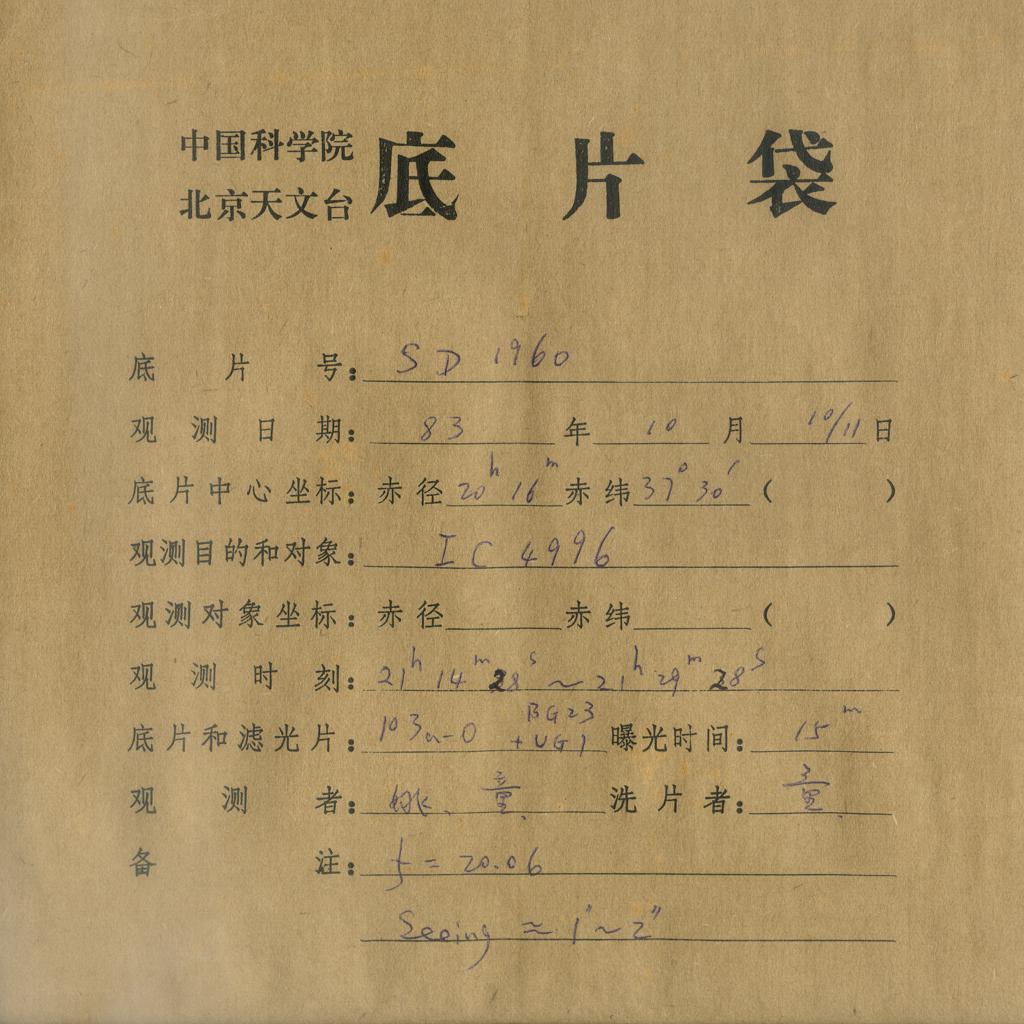 中国科学院
北京天文台
底片袋
底片号：SD 1960
观测日期：83年10月10/11日
底片中心坐标：赤径20h16m赤纬37°30′（ ）
观测目的和对象：IC 4996
观测对象坐标：赤径 赤纬 （ ）
观测时刻：21h14m28s～21h29m28s
底片和滤光片：103a-O BG23 +UG1 曝光时间：15m
观测者：姚、童 洗片者：童
备注：f = 20.06
Seeing ≈ 1″～2″